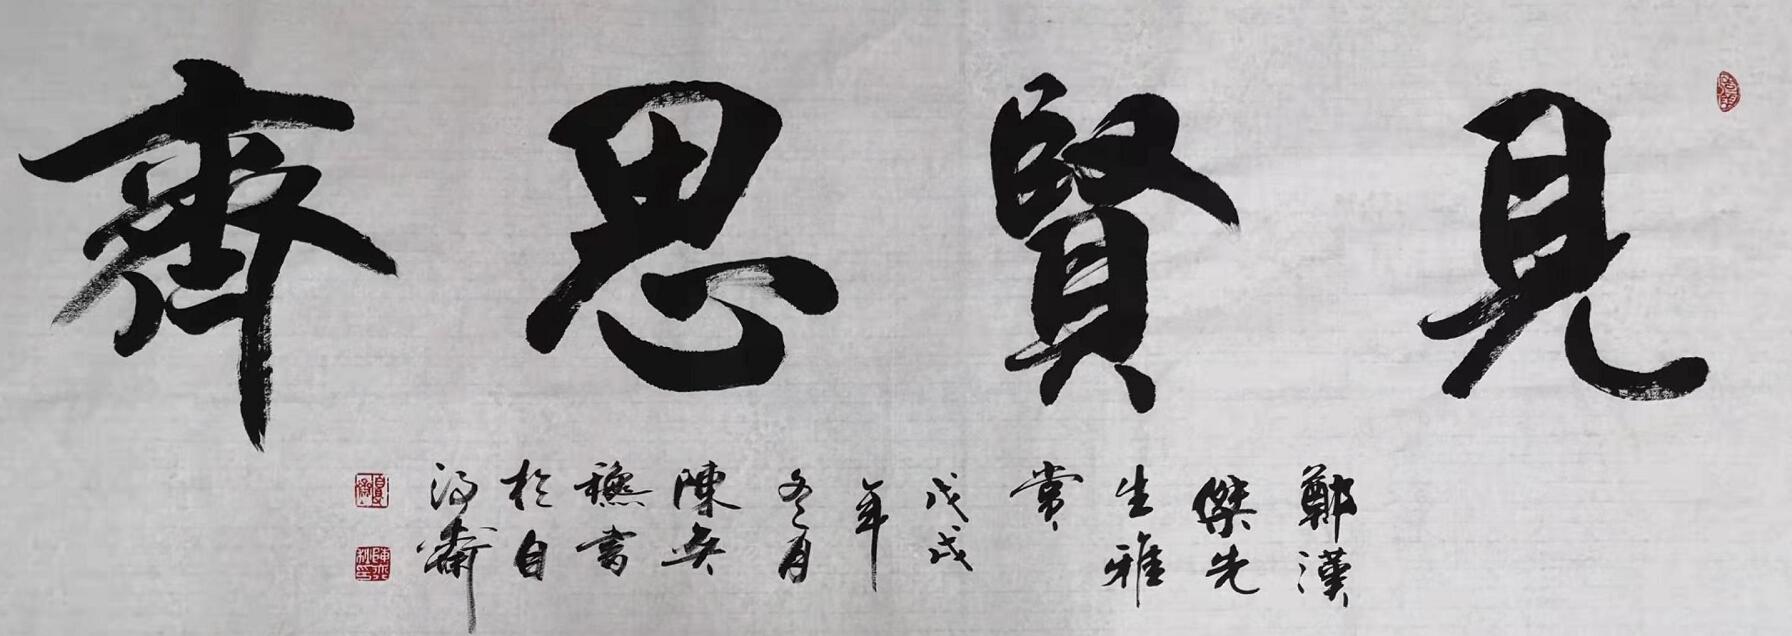 見賢思齊
鄭漢
傑先
生雅
賞
戊戌
年
冬月
陳奕
書
於自
得齋